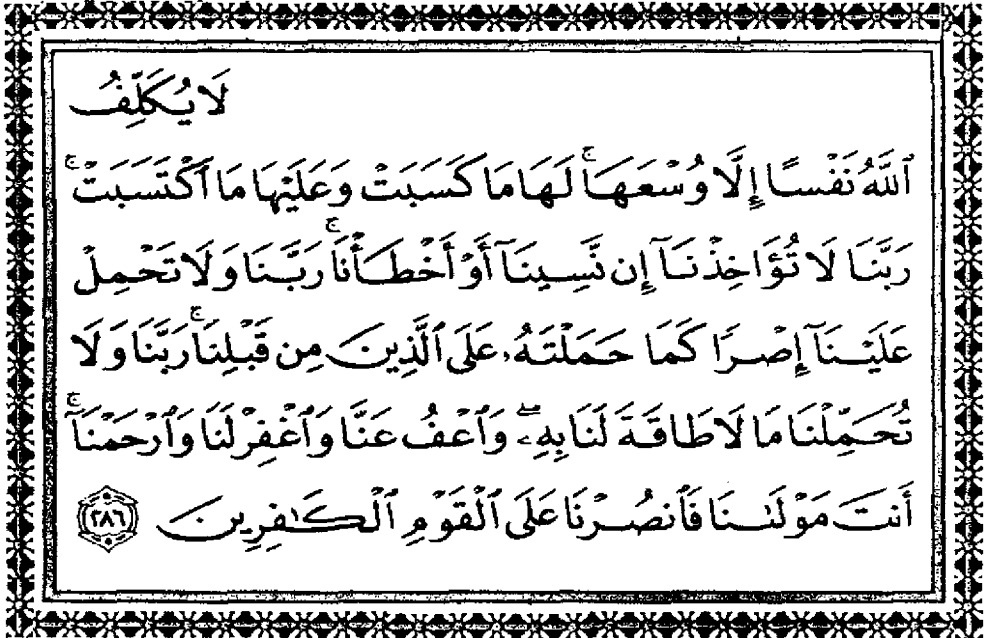 لَا يُكَلِّفُ
ٱللَّهُ نَفْسًا إِلَّا وُسْعَهَا ۚ لَهَا مَا كَسَبَتْ وَعَلَيْهَا مَا ٱكْتَسَبَتْ ۗ
رَبَّنَا لَا تُؤَاخِذْنَآ إِن نَّسِينَآ أَوْ أَخْطَأْنَا ۚ رَبَّنَا وَلَا تَحْمِلْ
عَلَيْنَآ إِصْرًا كَمَا حَمَلْتَهُۥ عَلَى ٱلَّذِينَ مِن قَبْلِنَا ۚ رَبَّنَا وَلَا
تُحَمِّلْنَا مَا لَا طَاقَةَ لَنَا بِهِۦ ۖ وَٱعْفُ عَنَّا وَٱغْفِرْ لَنَا وَٱرْحَمْنَآ ۚ
أَنتَ مَوْلَىٰنَا فَٱنصُرْنَا عَلَى ٱلْقَوْمِ ٱلْكَـٰفِرِينَ ٢٨٦